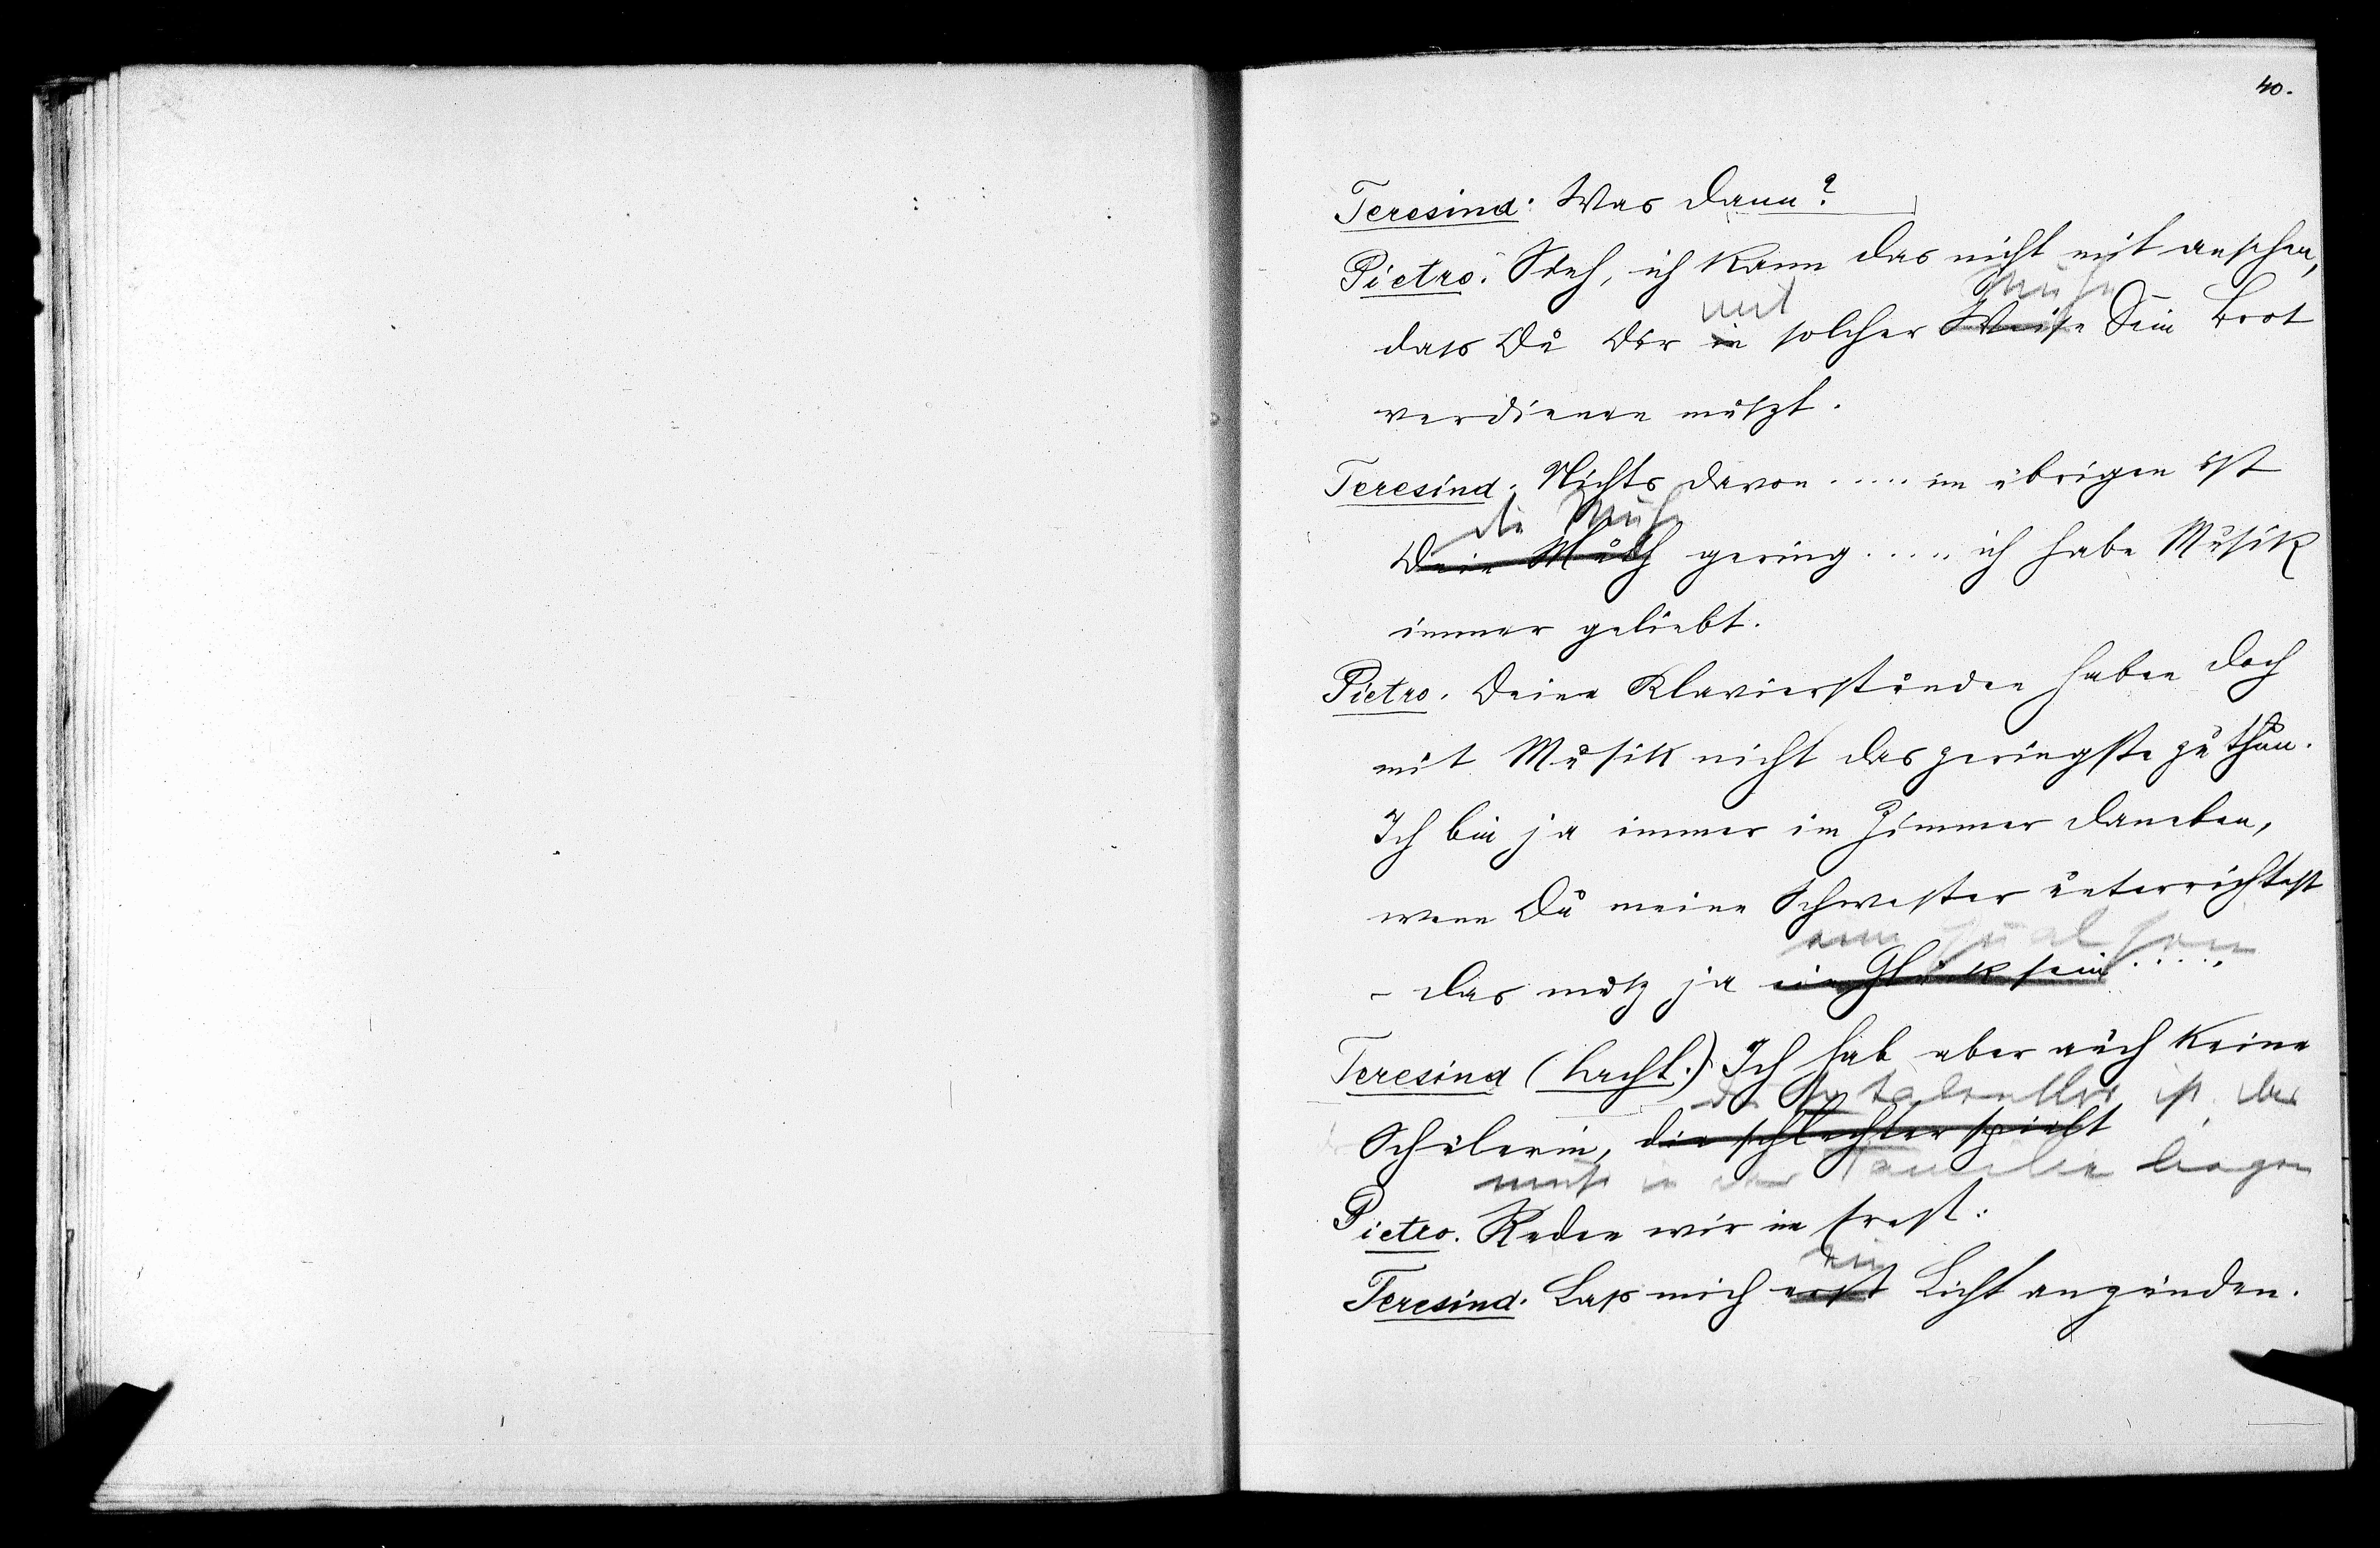 40.
Teresina: Was dann?
Pietro. Sieh, ich kann das nicht mit ansehen,
mit Mühe
dass Du Dir in solcher Weise Dein Brot
verdienen mußt.
Teresina. Nichts davon ..... im übrigen ist
die Mühe
Deine Müh gering ..... ich habe Musik
immer geliebt.
Pietro. Deine Klavierstunden haben doch
mit Musik nicht das geringste zu thun.
Ich bin ja immer im Zimmer daneben,
wenn Du meine Schwester unterrichtest
eine Qual sein
– das muß ja ein Glück sein .....
Teresina (lacht.) Ich hab aber auch keine
die talentlos ist. das
Schülerin, die schlechter spielt
muß in der Familie liegen
Pietro. Reden wir im Ernst:
Teresina. Lass mich erst Licht anzünden.